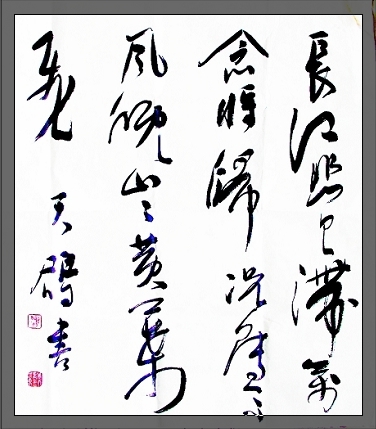 長江悲已滯萬
念將歸況屬高
風晚山〻黃葉
飛
天書